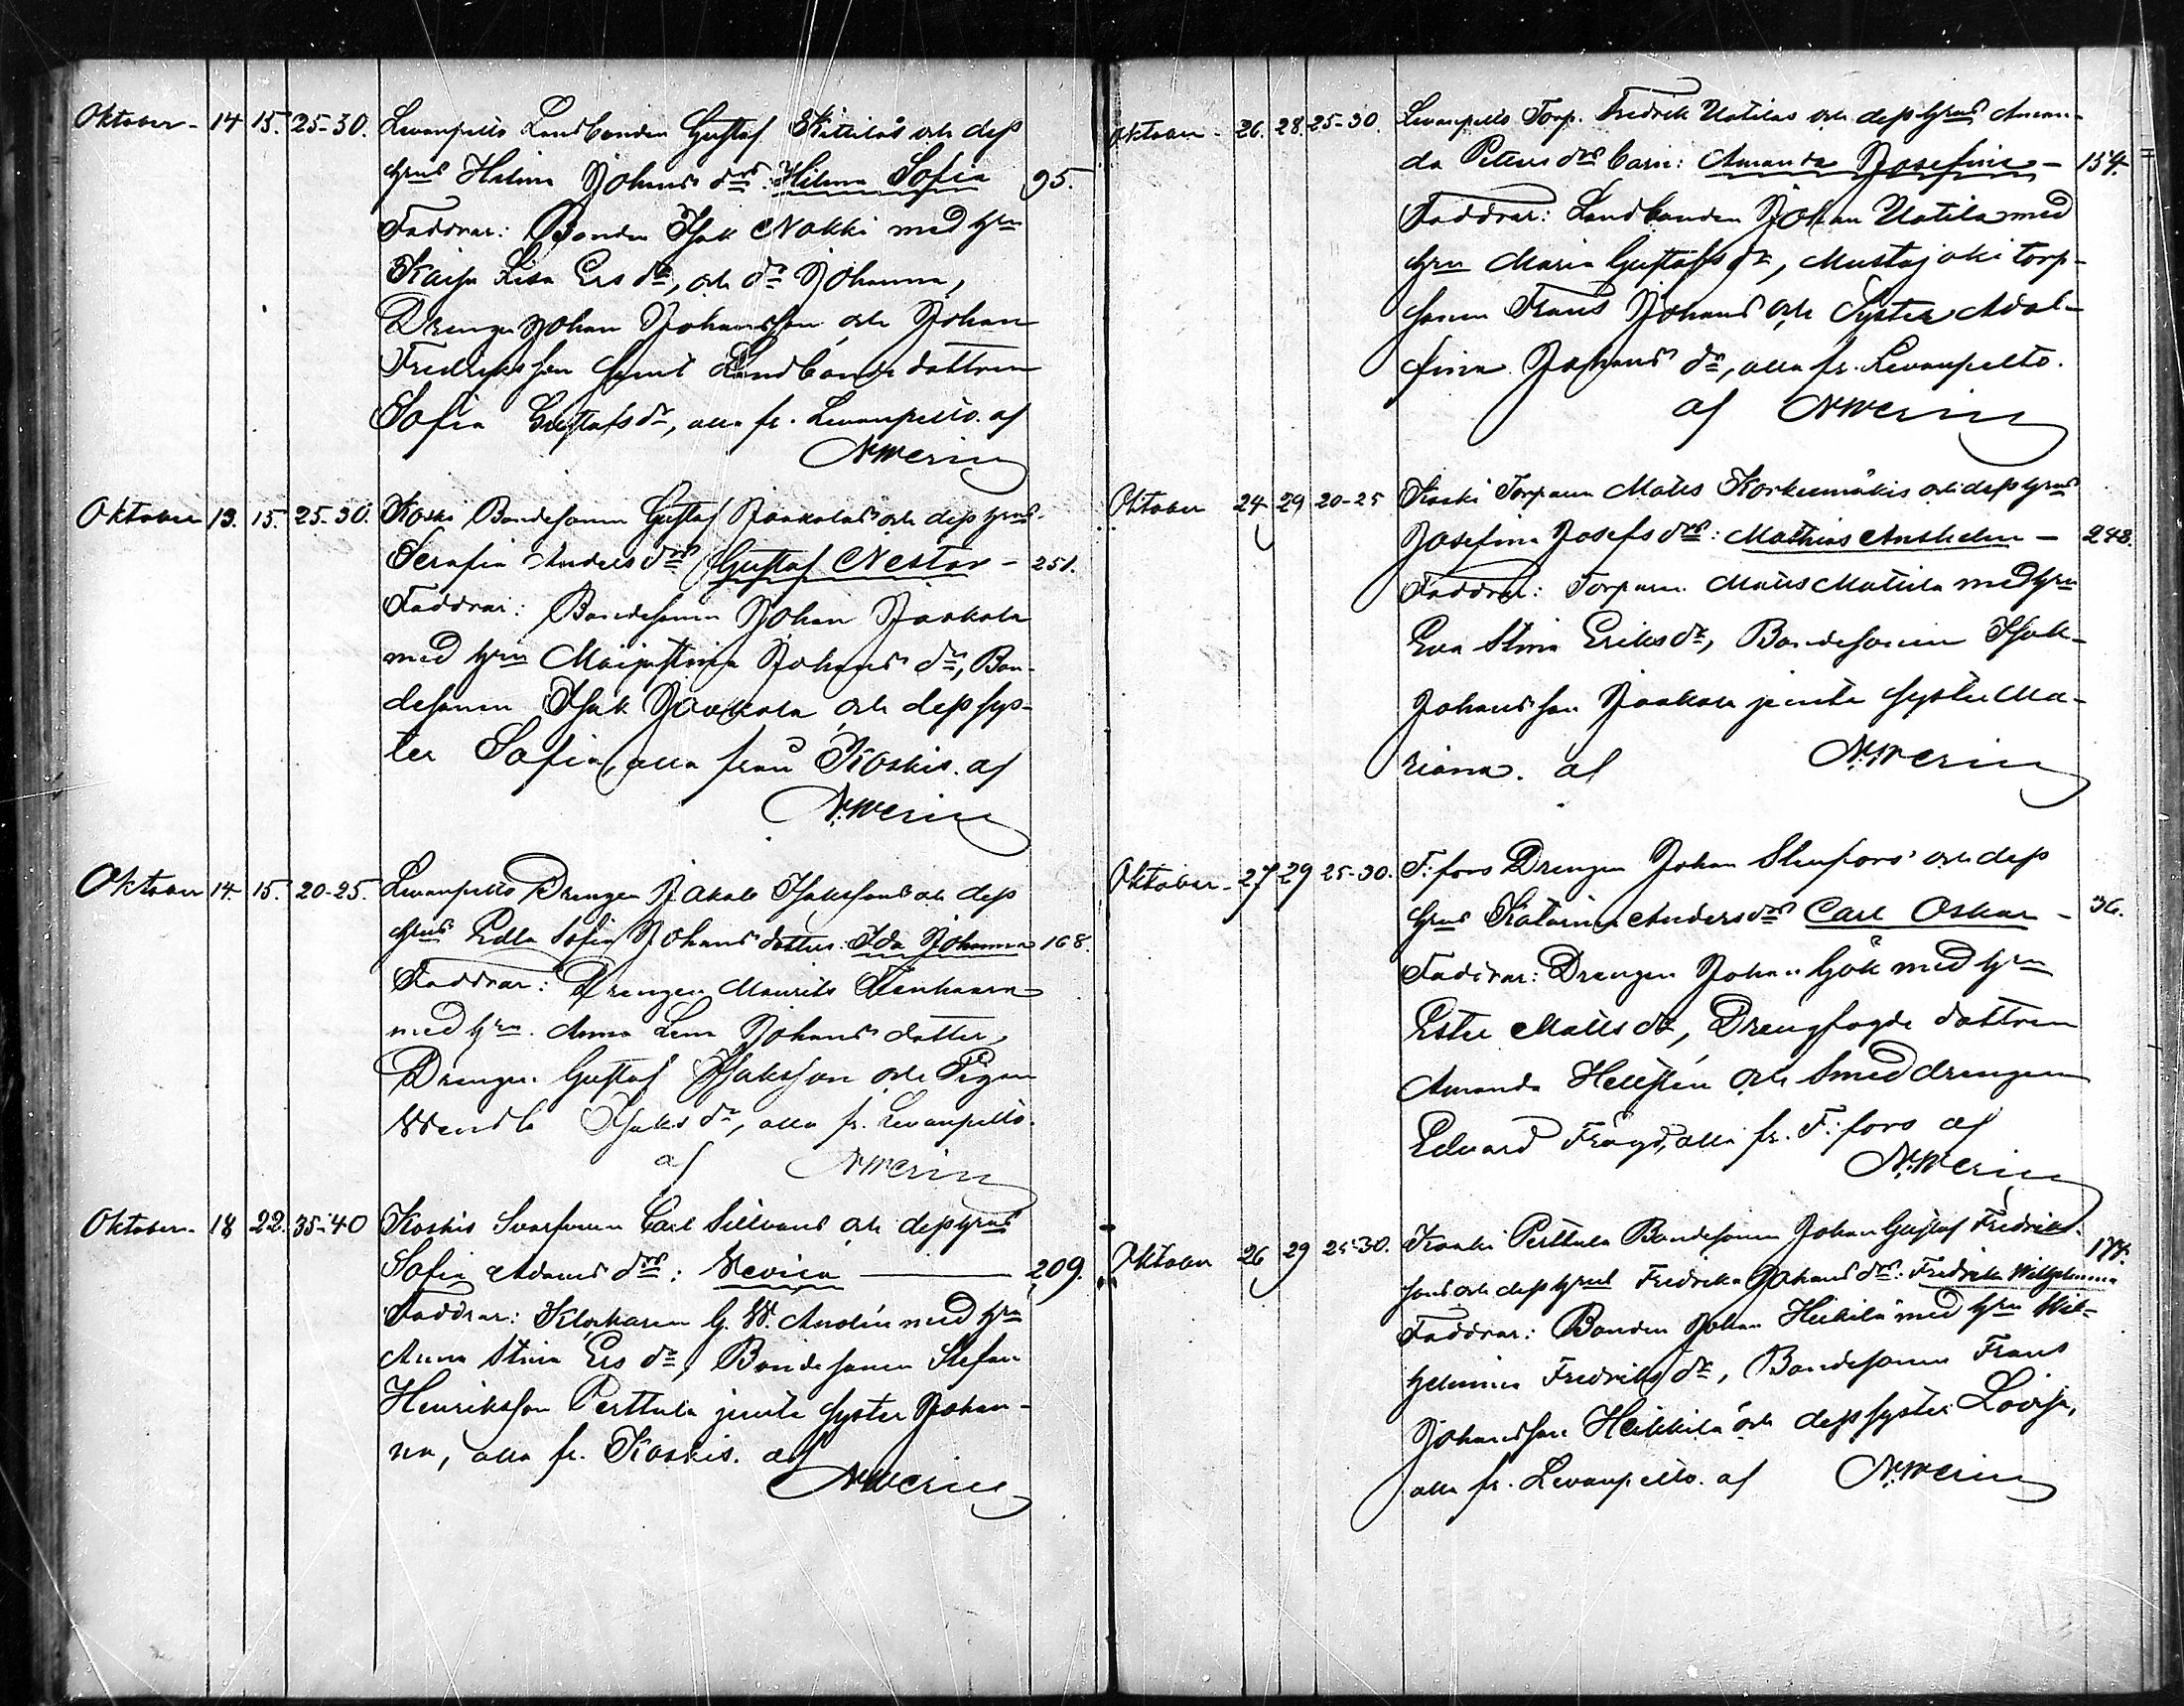 Oktober - 14 15. 25-30. Levanpelto Landbonden Gustaf Kittilas och dess
hrus Helena Johans drs: Hilma Sofia 95.
Faddrar: Bonden Isak Nokki med hru
Kaisa Lisa Ers dr, och dr Johanna,
Drengen Johan Johansson och Johan
Fredriksson samt Landbonde dottren
Sofia Gustafs dr, alla fr. Levanpelto. af
N. Werin
Oktober 13. 15. 25-30. Koski Bondesonen Gustaf Jaakolas och dess hrus
Serafia Anders drs Gustaf Nestor - 251.
Faddrar: Bondesonen Johan Jaakola
med hru Majastina Johans dr, Bon-
desonen Isak Jaakola och dess sys-
ter Sofia, alla från Koskis. af
N. Werin
Oktober 14. 15. 20-25. Levanpelto Drengen Jakob Isakssons och dess
hrus Edla Sofia Johans dotters: Ida Johanna 168.
Faddrar: Drengen Maurits
med hru. Anna Lena Johans dotter,
Drengen Gustaf Isaksson och Pigan
Wendla Isaks dr, alla fr. Levanpelto.
af N. Werin
Oktober - 18 22. 35-40 Koskis Svarfvaren Carl Sillvans och dess hrus
Sofia Adams drs: Nevica 209.
Faddrar: Klockaren G. W. Andén med hru
Anna Stina Ers dr, Bondesonen Stefan
Henriksson Perttula jemte syster Johan-
na, alla fr. Koskis. af
N. Werin
Oktober - 26. 28. 25-30. Levanpelto Torp. Fredrik Uotilas och dess hrus Aman-
da Peters drs barn: Amanda Josefina - 154.
Faddrar: Landbonden Johan Uotila med
hru Maria Gustafs dr, Mustajoki torp-
sonen Frans Johans och Syster Adol-
fina Johans dr, alla fr. Levanpelto.
af N. Werin
Oktober 24 29 20-25 Koski Torparen Matts Korkeemäkis och dess hrus
Josefina Josefs drs: Mathias Anshelm - 248.
Faddrar: Torparen Matts Mattila med hru
Eva Stina Eriks dr, Bondesonen Isak
Johansson Jaakola jemte syster Ma-
riana. af N. Werin
Oktober - 27 29 25-30. F:fors Drengen Johan Stenfors och dess
hrus Katarina Anders drs Carl Oskar - 36.
Faddrar: Drengen Johan Gök med hru
Ester Matts dr, Drengfogde dottren
Amanda Hellstén och Smeddrengen
Edvard Fröyd, alla fr. F:fors af
N. Werin
Oktober 26 29 25-30. Koski Perttula Bondesonen Johan Gustaf Fredriks-
sons och dess hrus Fredrika Johans drs: Fredrika Wilhelmina 177.
Faddrar: Bonden Johan Heikkilä med hru Wil-
helmina Fredriks dr, Bondesonen Frans
Johansson Heikkilä och dess syster Lovisa,
alla fr. Levanpelto. af N. Werin